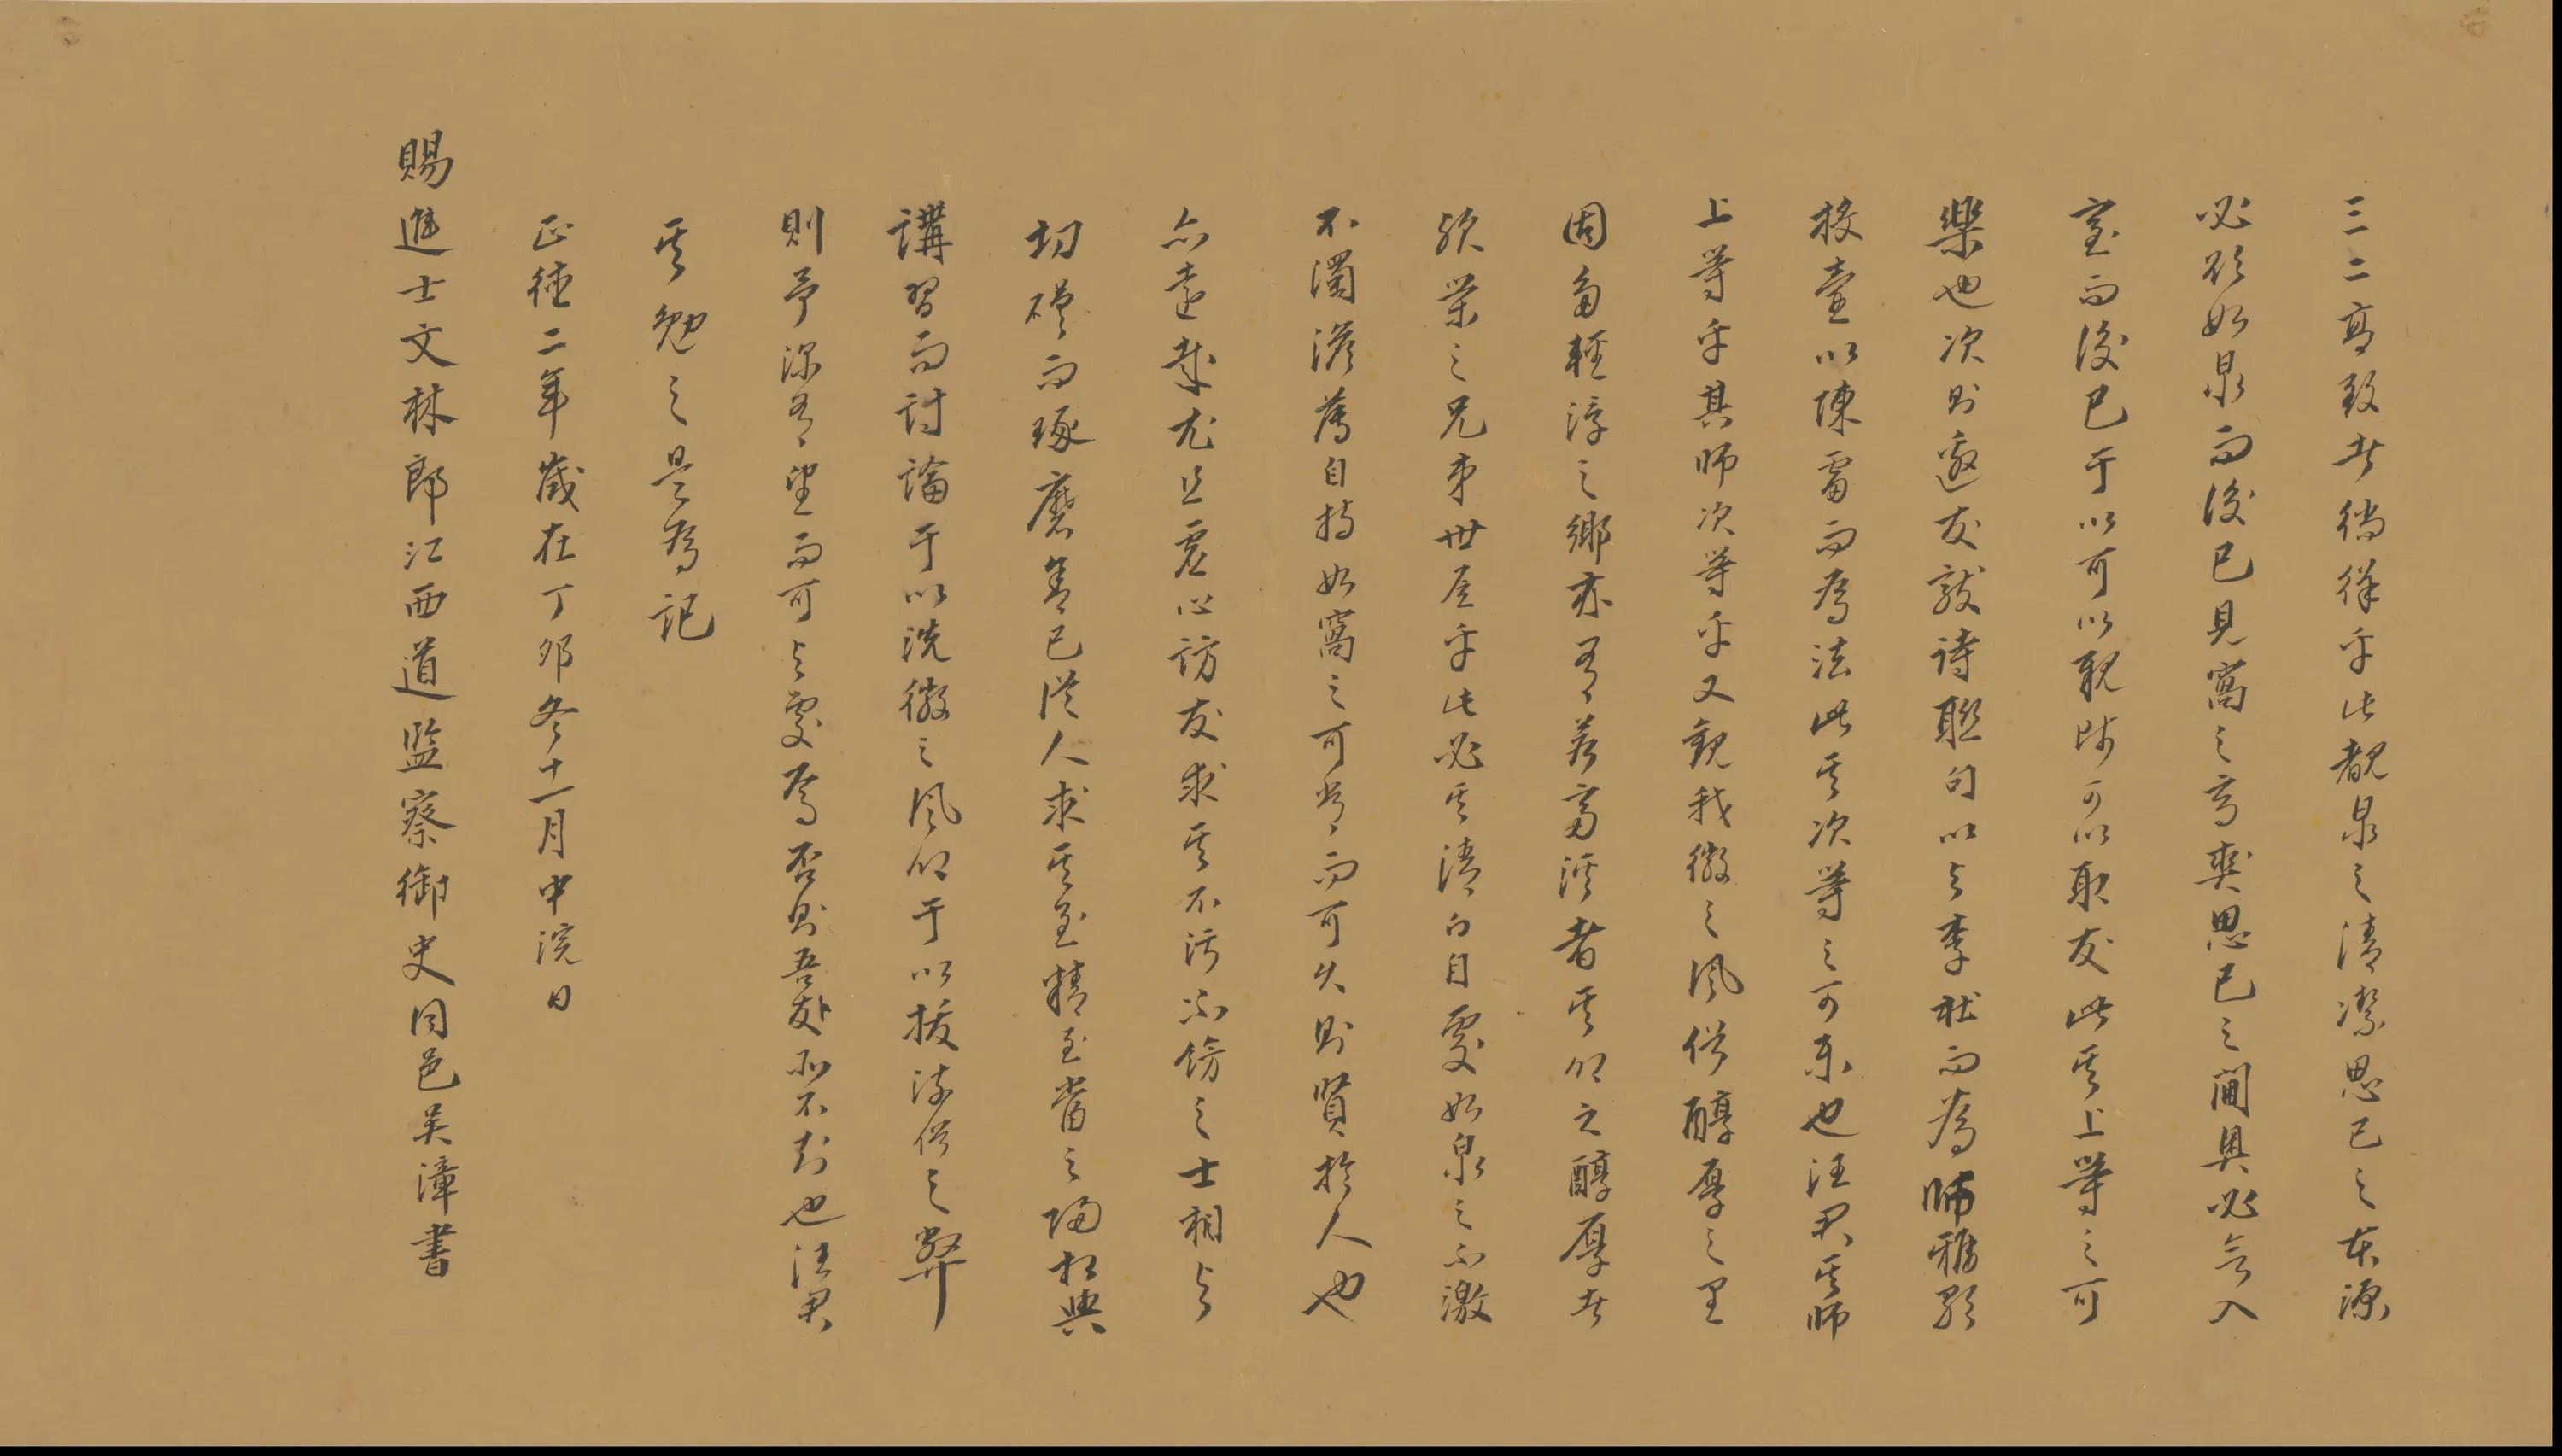 三二高致者徜徉乎此覩泉之清潔思己之本源
必欲如泉而後已見窩之高爽思己之閫奧必令入
室而後已于以可以觀時可以取友此其上等之可
樂也次則邀友敲詩聯句以與李杜而為師雅歌
投壺以陳雷而為法此其次等之可樂也汪君其師
上等乎其師次等乎又觀我徽之風俗醇厚之里
固多輕浮之鄉亦有若富溪者其俗之醇厚者
歟榮之兄弟世居乎此必其清白自處如泉之不激
不濁澹薄自持如窩之可常而可久則賢於人也
亦遠哉尤且虛心訪友求其不污不飾之士相與
切磋而琢磨舍己從人求其至精至當之歸相與
講習而討論于以洗徽之風俗于以拔流俗之弊
則予深有望而可與處焉否則吾友亦不刻也汪君
其勉之是為記
正德二年歲在丁卯冬十一月中浣日
賜進士文林郎江西道監察御史同邑吳漳書